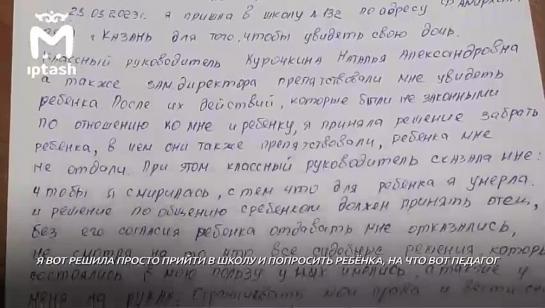 23.03.2023г. я пришла в школу №132 по адресу
г Казань для того, чтобы увидеть свою дочь.
Классный руководитель Курочкина Наталья Александровна
а также зам директора препятствовали мне увидеть
ребенка После их действий, которые были не законными
по отношению ко мне и ребенку, я приняла решение забрать
ребенка, в чем они также препятствовали, ребенка мне
не отдали. При этом классный руководитель сказала мне:
чтобы я смирилась, с тем что для ребенка я умерла.
и решение по общению с ребенком должен принять отец,
без его согласия ребенка отдавать мне отказались,
не смотря на то что все судебные решения, которые
состоялись в мою пользу у них имелись, а также у
меня на руках.
мои права и
iptash
Я ВОТ РЕШИЛА ПРОСТО ПРИЙТИ В ШКОЛУ И ПОПРОСИТЬ РЕБЁНКА, НА ЧТО ВОТ ПЕДАГОГ